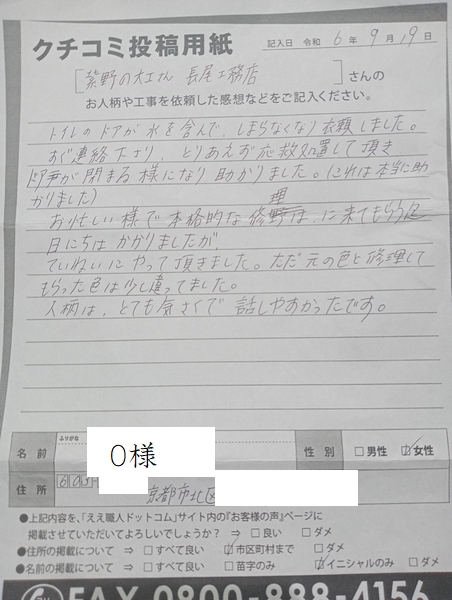 クチコミ投稿用紙
記入日 令和 6年 9月 19日
[紫野の大工さん 長尾工務店]さんの
お人柄や工事を依頼した感想などをご記入ください。
トイレのドアが水を含んで、しまらなくなり依頼しました。
すぐ連絡下さり、とりあえず応救処置して頂き
ドアが閉まる様になり助かりました。(これは本当に助
かりました)
お忙しい様で本格的な修理は、に来てもらう迄
日にちはかかりましたが、
ていねいにやって頂きました。ただ元の色と修理して
もらった色は少し違ってました。
人柄は、とても気さくで話しやすかったです。
ふりがな
名前 O様 性別 □男性 ☑女性
住所 京都市北区
●上記内容を、「ええ職人ドットコム」サイト内の『お客様の声』ページに
掲載させていただいてよろしいでしょうか? ⇒ □良い □ダメ
●住所の掲載について ⇒ □すべて良い ☑市区町村まで □ダメ
●名前の掲載について ⇒ □すべて良い □苗字のみ ☑イニシャルのみ □ダメ
FAX 0800-888-4156